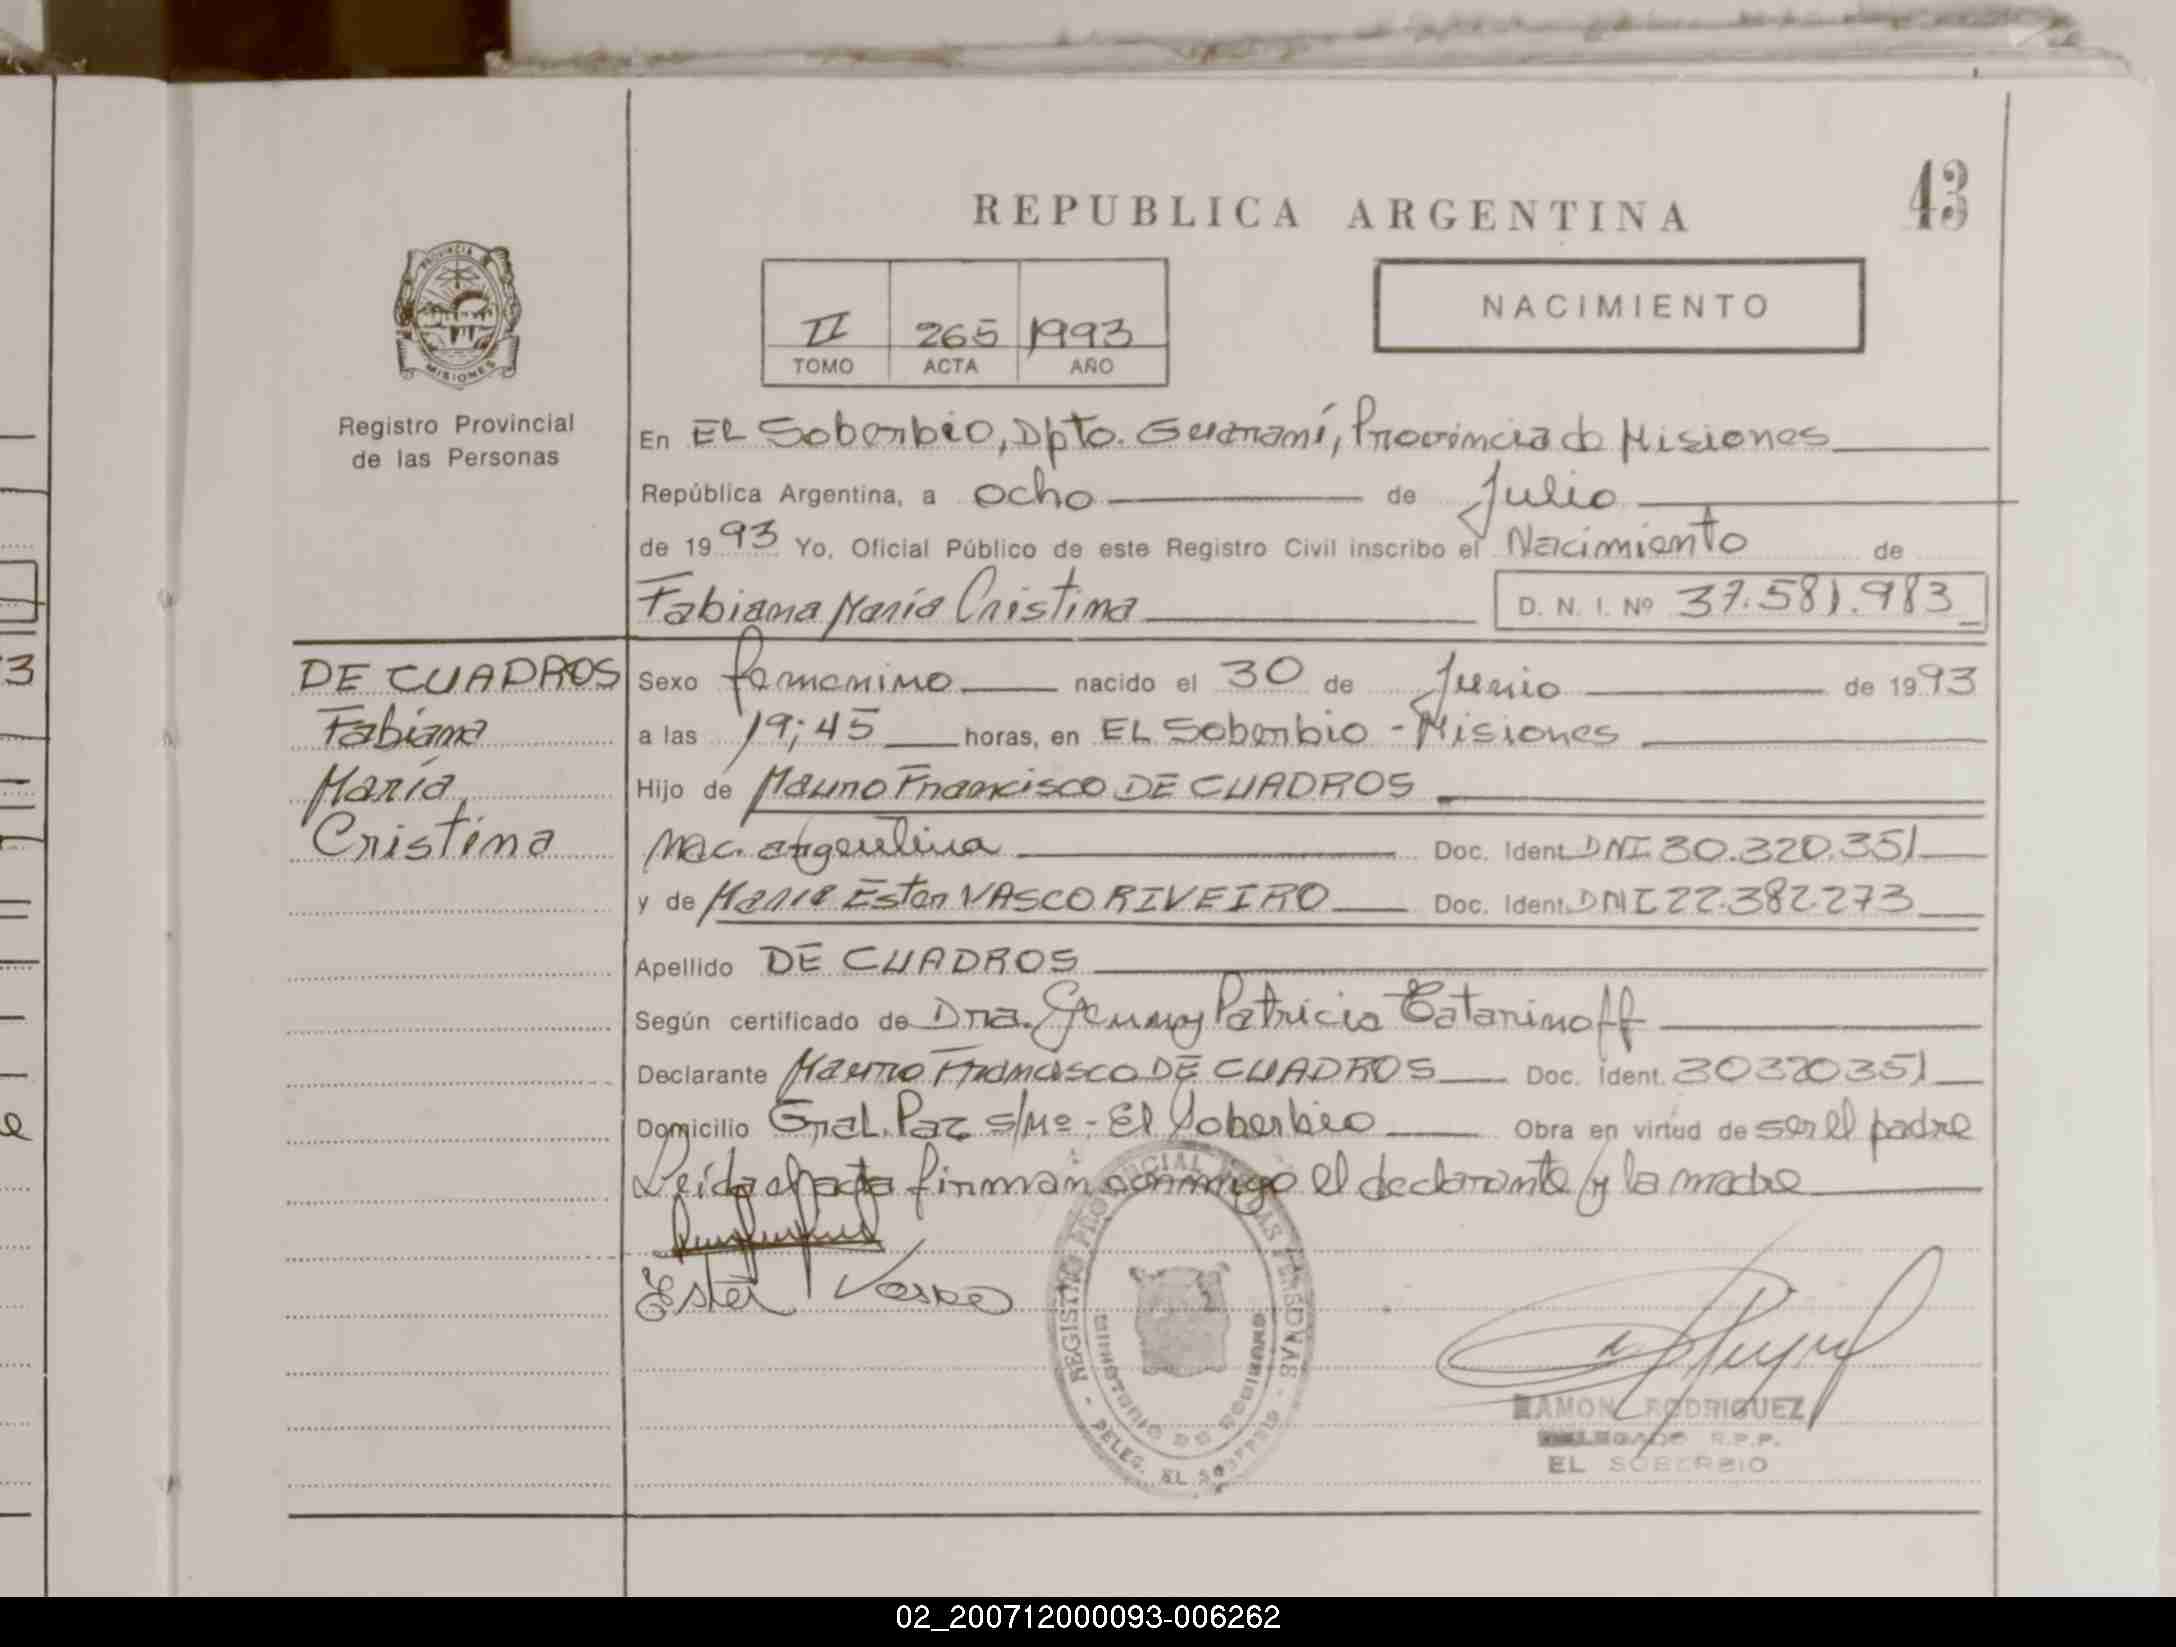 43
REPUBLICA ARGENTINA
PROVINCIA
MISIONES
Registro Provincial
de las Personas
II 265 1993
TOMO ACTA AÑO
NACIMIENTO
En EL Soberbio, Dpto. Guaraní, Provincia de Misiones
República Argentina, a ocho de Julio
de 1993 Yo, Oficial Público de este Registro Civil inscribo el Nacimiento de
Fabiana María Cristina D. N. I. Nº 37.581.983
DE CUADROS
Fabiana
María
Cristina
Sexo femenino nacido el 30 de Junio de 1993
a las 19;45 horas, en EL Soberbio - Misiones
Hijo de Mauro Francisco DE CUADROS
Nac. argentina Doc. Ident. DNI 30.320.351
y de María Ester VASCO RIVEIRO Doc. Ident. DNI 22.382.273
Apellido DE CUADROS
Según certificado de Dra. Genny Patricia Catarinoff
Declarante Mauro Francisco DE CUADROS Doc. Ident. 30320351
Domicilio Gral. Paz s/Nº - El Soberbio Obra en virtud de ser el padre
Leída el acta firman conmigo el declarante y la madre
Ester Vasco
REGISTRO PROVINCIAL DE LAS PERSONAS
MINISTERIO DE GOBIERNO
DELEG. EL SOBERBIO
RAMON RODRIGUEZ
DELEGADO R.P.P.
EL SOBERBIO
02_200712000093-006262